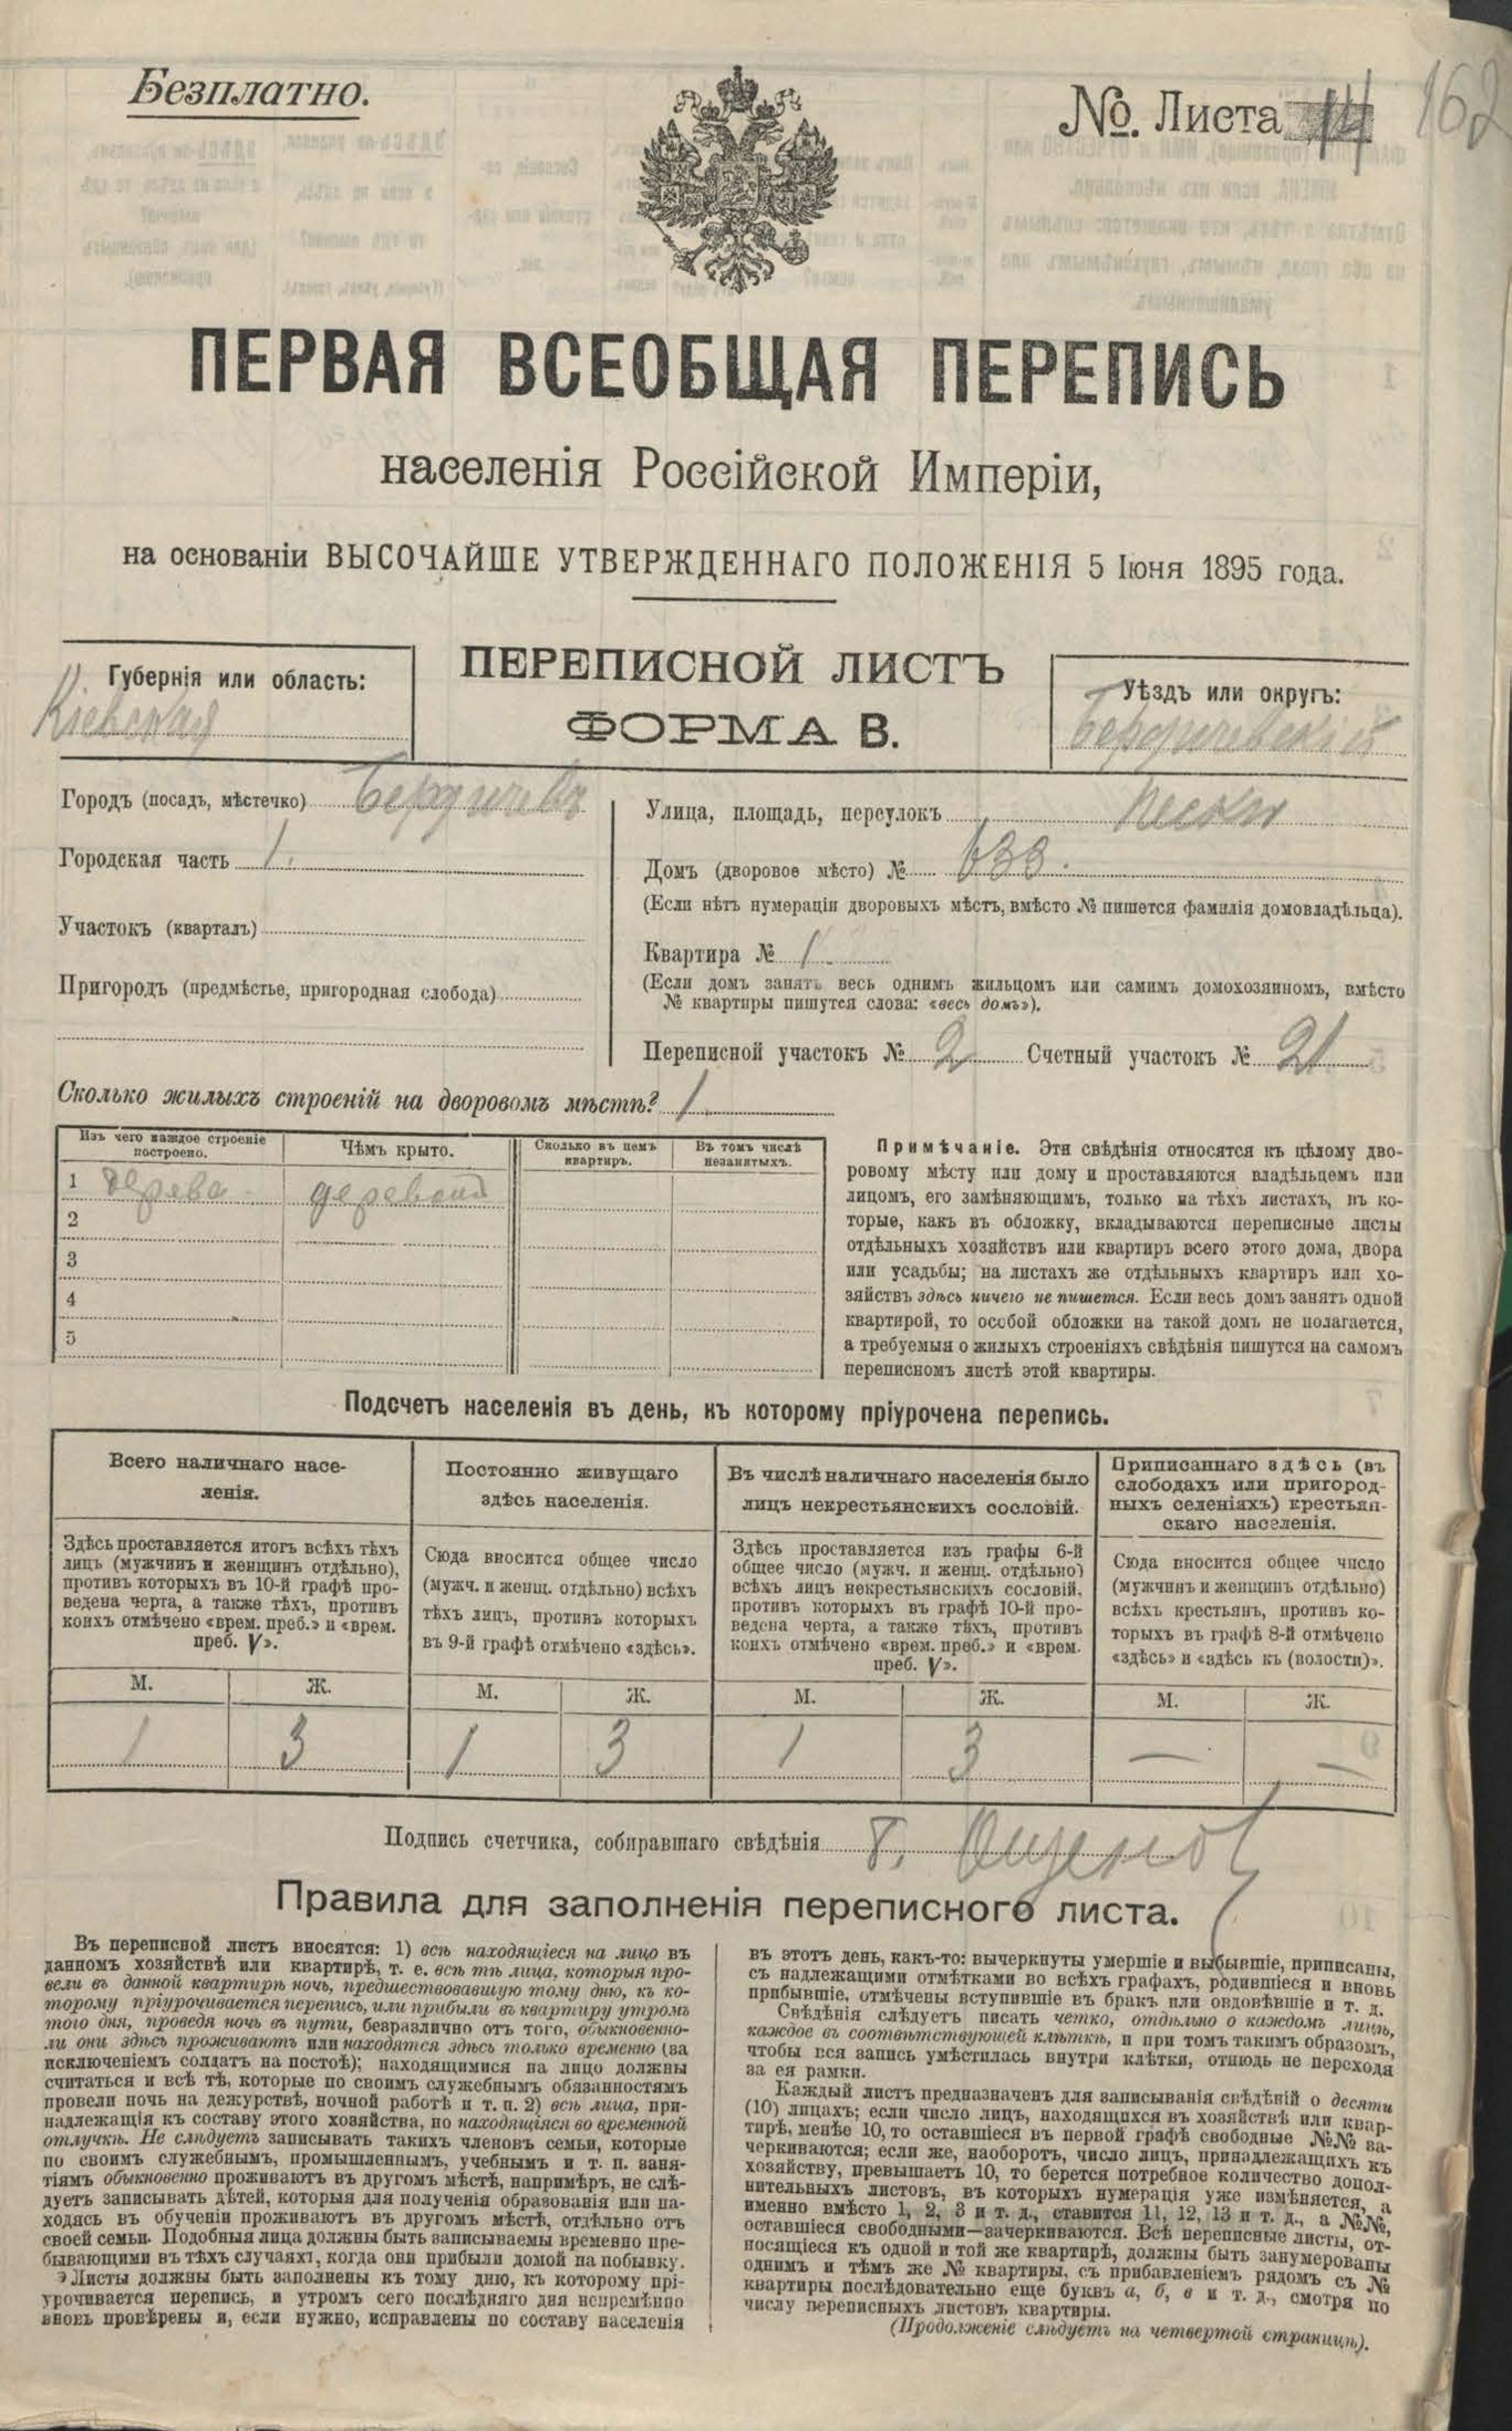 Безплатно.
№. Листа
162
ПЕРВАЯ ВСЕОБЩАЯ ПЕРЕПИСЬ
населенія Россійской Имперіи,
на основаніи ВЫСОЧАЙШЕ УТВЕРЖДЕННАГО ПОЛОЖЕНІЯ 5 Іюня 1895 года.
Губернія или область:
Кіевская
ПЕРЕПИСНОЙ ЛИСТЪ
ФОРМА В.
Уѣздъ или округъ:
Бердичевскій
Городъ (посадъ, мѣстечко) Бердичевъ
Городская часть 1.
Участокъ (кварталъ)
Пригородъ (предмѣстье, пригородная слобода)
Улица, площадь, переулокъ Пески
Домъ (дворовое мѣсто) № 633.
(Если нѣтъ нумераціи дворовыхъ мѣстъ, вмѣсто № пишется фамилія домовладѣльца).
Квартира № 1
(Если домъ занятъ весь однимъ жильцомъ или самимъ домохозяиномъ, вмѣсто
№ квартиры пишутся слова: «весь домъ»).
Переписной участокъ № 2 Счетный участокъ № 21
Сколько жилыхъ строеній на дворовомъ мѣстѣ? 1
Изъ чего каждое строеніе
построено.
Чѣмъ крыто.
Сколько въ немъ
квартиръ.
Въ томъ числѣ
незанятыхъ.
1 дерева
2
3
4
5
Примѣчаніе. Эти свѣдѣнія относятся къ цѣлому дво-
ровому мѣсту или дому и проставляются владѣльцемъ или
лицомъ, его замѣняющимъ, только на тѣхъ листахъ, въ ко-
торые, какъ въ обложку, вкладываются переписные листы
отдѣльныхъ хозяйствъ или квартиръ всего этого дома, двора
или усадьбы; на листахъ же отдѣльныхъ квартиръ или хо-
зяйствъ здѣсь ничего не пишется. Если весь домъ занятъ одной
квартирой, то особой обложки на такой домъ не полагается,
а требуемыя о жилыхъ строеніяхъ свѣдѣнія пишутся на самомъ
переписномъ листѣ этой квартиры.
Подсчетъ населенія въ день, къ которому пріурочена перепись.
Всего наличнаго насе-
ленія.
Здѣсь проставляется итогъ всѣхъ тѣхъ
лицъ (мужчинъ и женщинъ отдѣльно),
противъ которыхъ въ 10-й графѣ про-
ведена черта, а также тѣхъ, противъ
коихъ отмѣчено «врем. преб.» и «врем.
преб. V».
М. Ж.
1 3
Постоянно живущаго
здѣсь населенія.
Сюда вносится общее число
(мужч. и женщ. отдѣльно) всѣхъ
тѣхъ лицъ, противъ которыхъ
въ 9-й графѣ отмѣчено «здѣсь».
М. Ж.
1 3
Въ числѣ наличнаго населенія было
лицъ некрестьянскихъ сословій.
Здѣсь проставляется изъ графы 6-й
общее число (мужч. и женщ. отдѣльно)
всѣхъ лицъ некрестьянскихъ сословій,
противъ которыхъ въ графѣ 10-й про-
ведена черта, а также тѣхъ, противъ
коихъ отмѣчено «врем. преб.» и «врем.
преб. V».
М. Ж.
1 3
Приписаннаго здѣсь (въ
слободахъ или пригород-
ныхъ селеніяхъ) крестьян-
скаго населенія.
Сюда вносится общее число
(мужчинъ и женщинъ отдѣльно)
всѣхъ крестьянъ, противъ ко-
торыхъ въ графѣ 8-й отмѣчено
«здѣсь» и «здѣсь къ (волости)».
М. Ж.
— —
Подпись счетчика, собиравшаго свѣдѣнія
Правила для заполненія переписного листа.
Въ переписной листъ вносятся: 1) всѣ находящіеся на лицо въ
данномъ хозяйствѣ или квартирѣ, т. е. всѣ тѣ лица, которыя про-
вели въ данной квартирѣ ночь, предшествовавшую тому дню, къ ко-
торому пріурочивается перепись, или прибыли въ квартиру утромъ
того дня, проведя ночь въ пути, безразлично отъ того, обыкновенно-
ли они здѣсь проживаютъ или находятся здѣсь только временно (за
исключеніемъ солдатъ на постоѣ); находящимися на лицо должны
считаться и всѣ тѣ, которые по своимъ служебнымъ обязанностямъ
провели ночь на дежурствѣ, ночной работѣ и т. п. 2) всѣ лица, при-
надлежащія къ составу этого хозяйства, но находящіяся во временной
отлучкѣ. Не слѣдуетъ записывать такихъ членовъ семьи, которые
по своимъ служебнымъ, промышленнымъ, учебнымъ и т. п. заня-
тіямъ обыкновенно проживаютъ въ другомъ мѣстѣ, напримѣръ, не слѣ-
дуетъ записывать дѣтей, которыя для полученія образованія или на-
ходясь въ обученіи проживаютъ въ другомъ мѣстѣ, отдѣльно отъ
своей семьи. Подобныя лица должны быть записываемы временно пре-
бывающими въ тѣхъ случаяхъ, когда они прибыли домой на побывку.
Листы должны быть заполнены къ тому дню, къ которому прі-
урочивается перепись, и утромъ сего послѣдняго дня непремѣнно
вновь провѣрены и, если нужно, исправлены по составу населенія
въ этотъ день, какъ-то: вычеркнуты умершіе и выбывшіе, приписаны,
съ надлежащими отмѣтками во всѣхъ графахъ, родившіеся и вновь
прибывшіе, отмѣчены вступившіе въ бракъ или овдовѣвшіе и т. д.
Свѣдѣнія слѣдуетъ писать четко, отдѣльно о каждомъ лицѣ,
каждое въ соотвѣтствующей клѣткѣ, и при томъ такимъ образомъ,
чтобы вся запись умѣстилась внутри клѣтки, отнюдь не переходя
за ея рамки.
Каждый листъ предназначенъ для записыванія свѣдѣній о десяти
(10) лицахъ; если число лицъ, находящихся въ хозяйствѣ или квар-
тирѣ, менѣе 10, то оставшіеся въ первой графѣ свободные №№ за-
черкиваются; если же, наоборотъ, число лицъ, принадлежащихъ къ
хозяйству, превышаетъ 10, то берется потребное количество допол-
нительныхъ листовъ, въ которыхъ нумерація уже измѣняется, а
именно вмѣсто 1, 2, 3 и т. д., ставится 11, 12, 13 и т. д., а №№,
оставшіеся свободными—зачеркиваются. Всѣ переписные листы, от-
носящіеся къ одной и той же квартирѣ, должны быть занумерованы
однимъ и тѣмъ же № квартиры, съ прибавленіемъ рядомъ съ №
квартиры послѣдовательно еще буквъ а, б, в и т. д., смотря по
числу переписныхъ листовъ квартиры.
(Продолженіе слѣдуетъ на четвертой страницѣ).